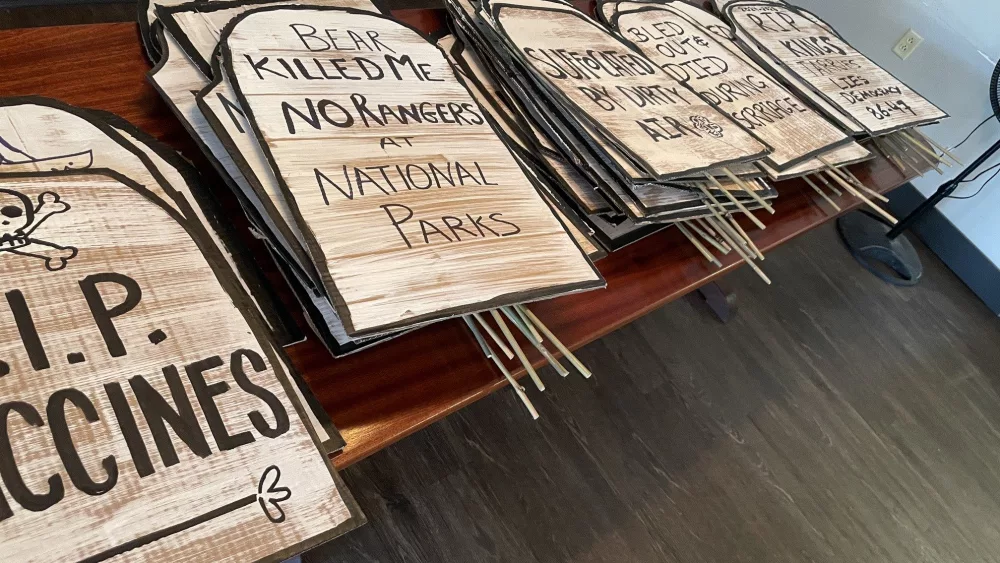 .I.P.
CCINES
BEAR
KILLED ME
NO RANGERS
AT
NATIONAL
PARKS
SUFFOCATED
BY DIRTY
AIR
BLED
OUT &
DIED
DURING
R.I.P.
KINGS
LIES
DEMOCRACY
86-47